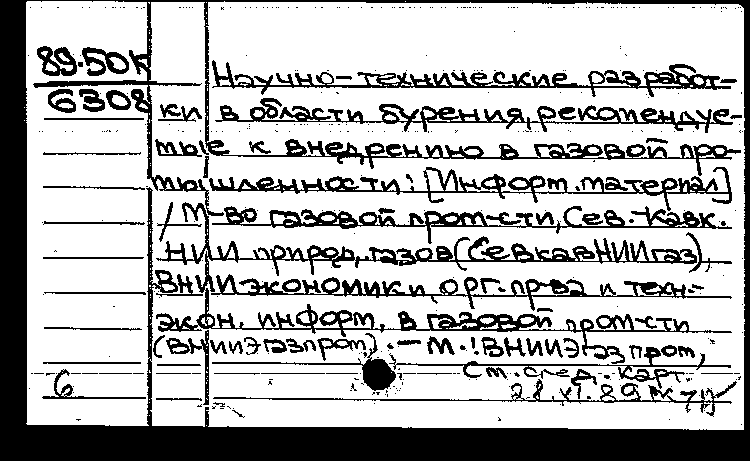 89-50К
6308
Научно-технические разработ-
ки в области бурения, рекомендуе-
мые к внедрению в газовой про-
мышленности: [Информ. материал]
/ М-во газовой пром-сти, Сев.-Кавк.
НИИ природ. газов (СевкавНИИгаз),
ВНИИ экономики, орг. пр-ва и техн.-
экон. информ. в газовой пром-сти
(ВНИИЭгазпром). – М.: ВНИИЭгазпром,
См. след. карт.
6
28.XI.89